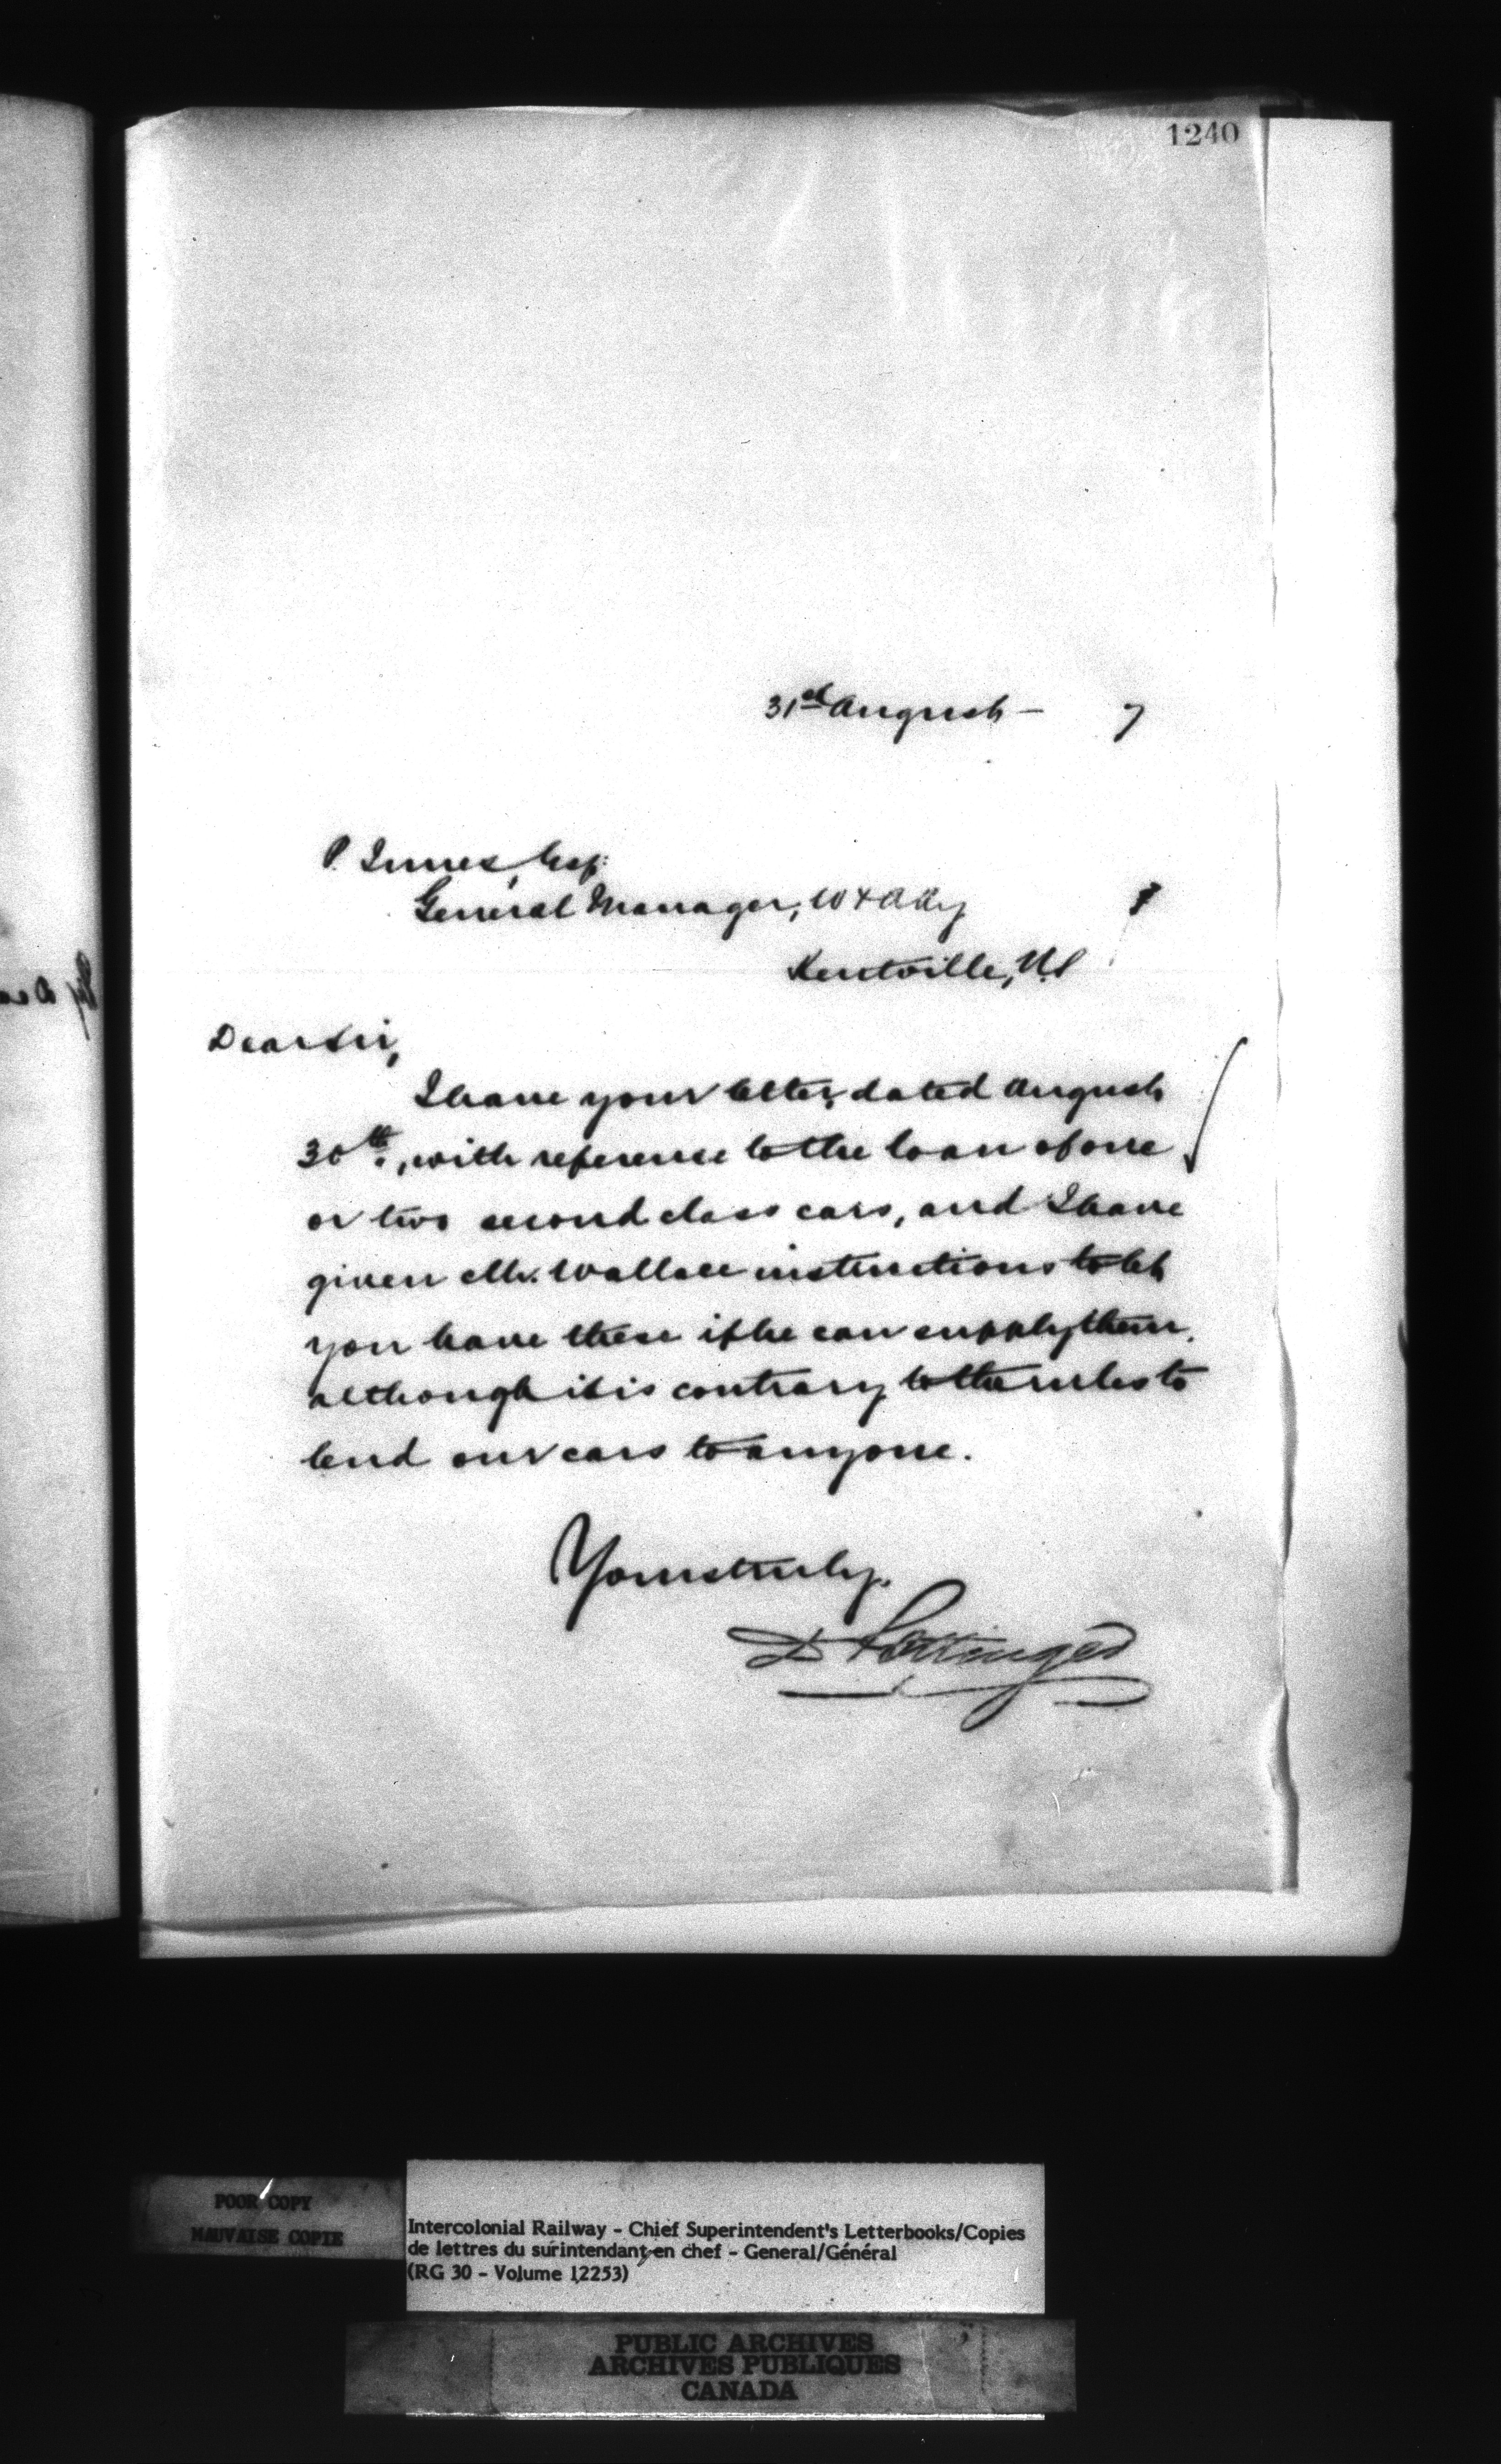 1240
31st August — 7
P. Innes, Esq:
General Manager, W & A Ry
Kentville, N.S
Dear Sir,
I have your letter, dated August
30th., with reference to the loan of one
or two second class cars, and I have
given Mr. Wallace instructions to let
you have these if he can supply them,
although it is contrary to the rules to
lend our cars to anyone.
Yours truly,
D Pottinger
POOR COPY
MAUVAISE COPIE
Intercolonial Railway - Chief Superintendent's Letterbooks/Copies
de lettres du surintendant en chef - General/Général
(RG 30 - Volume 12253)
PUBLIC ARCHIVES
ARCHIVES PUBLIQUES
CANADA